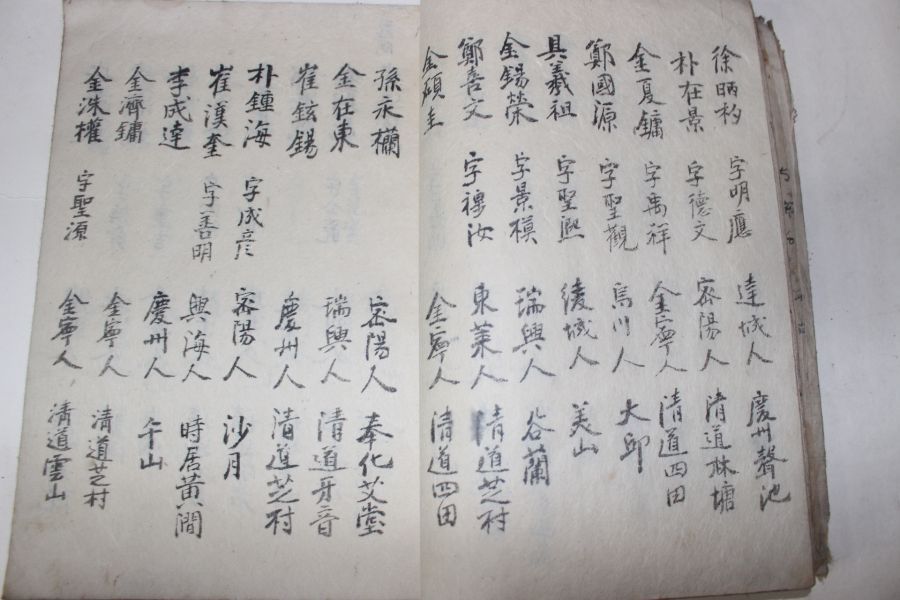 徐昞杓 字明應 達城人 慶州聲池
朴在景 字德文 密陽人 清道林塘
金夏鏞 字禹祥 金寧人 清道四田
鄭國源 字聖觀 烏川人 大邱
具羲祖 字聖熙 綾城人 美山
金錫榮 字景模 瑞興人 谷蘭
鄭喜文 字禪汝 東萊人 清道芝村
金碩圭 金寧人 清道四田
孫永欄 密陽人 奉化艾堂
金在東 瑞興人 清道牙音
崔鉉錫 慶州人 清道芝村
朴鍾海 字成彦 密陽人 沙月
崔漢奎 字善明 興海人 時居黃澗
李成達 慶州人 午山
金濟鏞 金寧人 清道芝村
金洙權 字聖源 金寧人 清道雲山